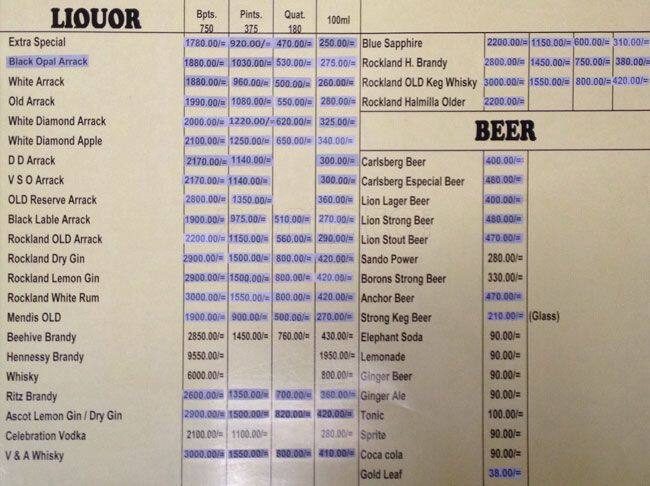 LIQUOR Bpts. 750 Pints. 375 Quat. 180 100ml
Extra Special 1780.00/= 920.00/= 470.00/= 250.00/=
Black Opal Arrack 1880.00/= 1030.00/= 530.00/= 275.00/=
White Arrack 1880.00/= 960.00/= 500.00/= 260.00/=
Old Arrack 1990.00/= 1080.00/= 550.00/= 280.00/=
White Diamond Arrack 2000.00/= 1220.00/= 620.00/= 325.00/=
White Diamond Apple 2100.00/= 1250.00/= 650.00/= 340.00/=
D D Arrack 2170.00/= 1140.00/= 300.00/=
V S O Arrack 2170.00/= 1140.00/= 300.00/=
OLD Reserve Arrack 2800.00/= 1350.00/= 360.00/=
Black Lable Arrack 1900.00/= 975.00/= 510.00/= 270.00/=
Rockland OLD Arrack 2200.00/= 1150.00/= 560.00/= 290.00/=
Rockland Dry Gin 2900.00/= 1500.00/= 800.00/= 420.00/=
Rockland Lemon Gin 2900.00/= 1500.00/= 800.00/= 420.00/=
Rockland White Rum 3000.00/= 1550.00/= 800.00/= 420.00/=
Mendis OLD 1900.00/= 900.00/= 500.00/= 270.00/=
Beehive Brandy 2850.00/= 1450.00/= 760.00/= 430.00/=
Hennessy Brandy 9550.00/= 1950.00/=
Whisky 6000.00/= 800.00/=
Ritz Brandy 2600.00/= 1350.00/= 700.00/= 360.00/=
Ascot Lemon Gin / Dry Gin 2900.00/= 1500.00/= 820.00/= 420.00/=
Celebration Vodka 2100.00/= 1100.00/= 280.00/=
V & A Whisky 3000.00/= 1550.00/= 800.00/= 410.00/=
Blue Sapphire 2200.00/= 1150.00/= 600.00/= 310.00/=
Rockland H. Brandy 2800.00/= 1450.00/= 750.00/= 380.00/=
Rockland OLD Keg Whisky 3000.00/= 1550.00/= 800.00/= 420.00/=
Rockland Halmilla Older 2200.00/=
BEER
Carlsberg Beer 400.00/=
Carlsberg Especial Beer 480.00/=
Lion Lager Beer 400.00/=
Lion Strong Beer 480.00/=
Lion Stout Beer 470.00/=
Sando Power 280.00/=
Borons Strong Beer 330.00/=
Anchor Beer 470.00/=
Strong Keg Beer 210.00/= (Glass)
Elephant Soda 90.00/=
Lemonade 90.00/=
Ginger Beer 90.00/=
Ginger Ale 90.00/=
Tonic 100.00/=
Sprite 90.00/=
Coca cola 90.00/=
Gold Leaf 38.00/=